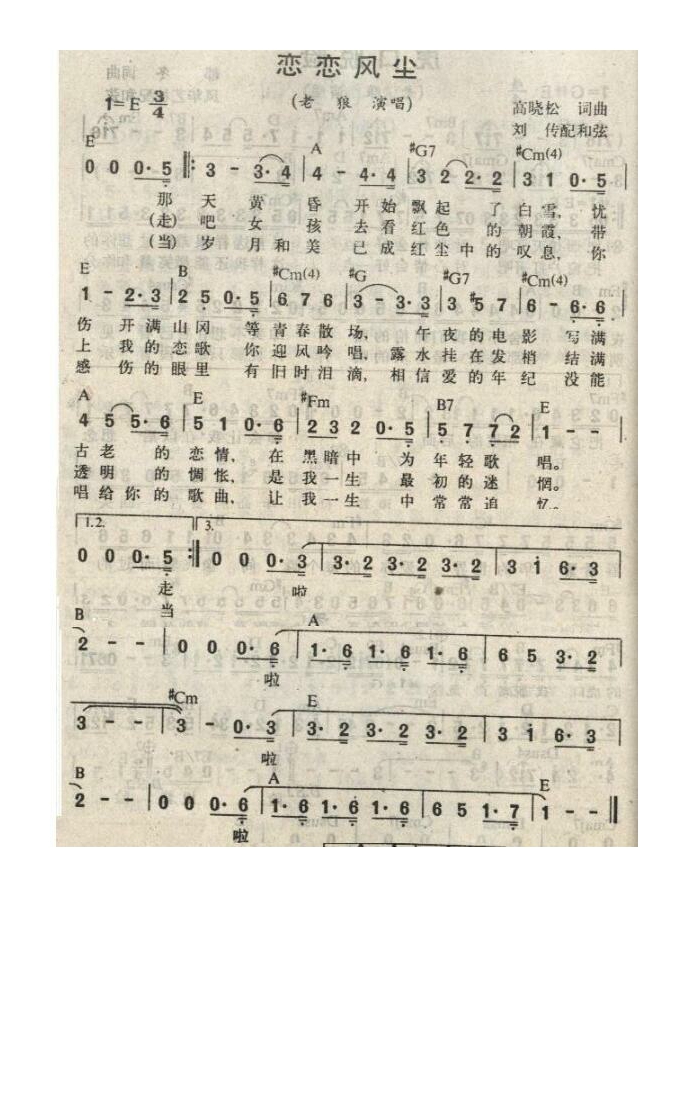 恋恋风尘
1=E 3/4
(老 狼 演唱)
高晓松 词曲
刘 传配和弦
E A #G7 #Cm(4)
0 0 0·5 ‖: 3 - 3·4 | 4 - 4·4 | 3 2 2·2 | 3 1 0·5 |
那 天 黄 昏 开 始 飘 起 了 白 雪, 忧
(走) 吧 女 孩 去 看 红 色 的 朝 霞, 带
(当) 岁 月 和 美 已 成 红 尘 中 的 叹 息, 你
E B #Cm(4) #G #G7 #Cm(4)
1 - 2·3 | 2 5 0·5 | 6 7 6 | 3 - 3·3 | 3 #5 7 | 6 - 6·6 |
伤 开 满 山 冈 等 青 春 散 场, 午 夜 的 电 影 写 满
上 我 的 恋 歌 你 迎 风 吟 唱, 露 水 挂 在 发 梢 结 满
感 伤 的 眼 里 有 旧 时 泪 滴, 相 信 爱 的 年 纪 没 能
A E #Fm B7 E
4 5 5·6 | 5 1 0·6 | 2 3 2 0·5 | 5 7 7 2 | 1 - - |
古 老 的 恋 情, 在 黑 暗 中 为 年 轻 歌 唱。
透 明 的 惆 怅, 是 我 一 生 最 初 的 迷 惘。
唱 给 你 的 歌 曲, 让 我 一 生 中 常 常 追 忆。
1.2. 3.
0 0 0·5 :‖ 0 0 0·3 | 3·2 3·2 3·2 | 3 1 6·3 |
走 啦
当
B A
2 - - | 0 0 0·6 | 1·6 1·6 1·6 | 6 5 3·2 |
啦
#Cm E
3 - - | 3 - 0·3 | 3·2 3·2 3·2 | 3 1 6·3 |
啦
B A E
2 - - | 0 0 0·6 | 1·6 1·6 1·6 | 6 5 1·7 | 1 - - ‖
啦